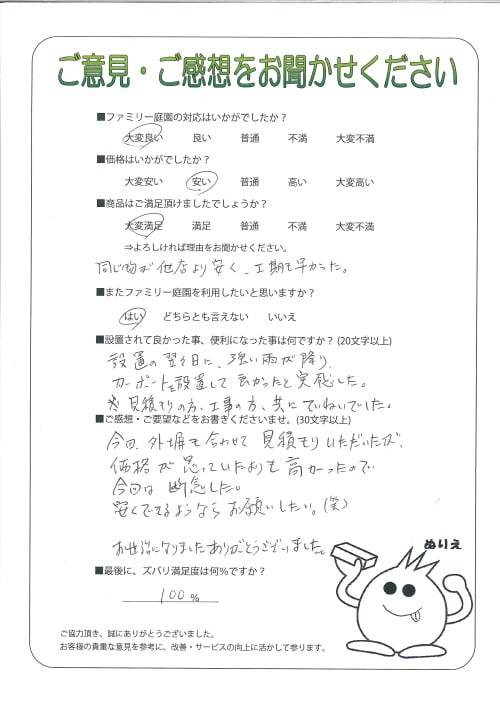 ご意見・ご感想をお聞かせください
■ファミリー庭園の対応はいかがでしたか？
大変良い 良い 普通 不満 大変不満
■価格はいかがでしたか？
大変安い 安い 普通 高い 大変高い
■商品はご満足頂けましたでしょうか？
大変満足 満足 普通 不満 大変不満
⇒よろしければ理由をお聞かせください。
同じ物が他店より安く、工期も早かった。
■またファミリー庭園を利用したいと思いますか？
はい どちらとも言えない いいえ
■設置されて良かった事、便利になった事は何ですか？(20文字以上)
設置の翌々日に、強い雨が降り、
カーポートを設置して良かったと実感した。
※見積もりの方、工事の方、共にていねいでした。
■ご感想・ご要望などをお書きくださいませ。(30文字以上)
今回、外塀も合わせて見積もりいただいたが、
価格が思っていたよりも高かったので
今回は断念した。
安くできるようならお願いしたい。(笑)
お世話になりましたありがとうございました。
ぬりえ
■最後に、ズバリ満足度は何％ですか？
100 %
ご協力頂き、誠にありがとうございました。
お客様の貴重な意見を参考に、改善・サービスの向上に活かして参ります。